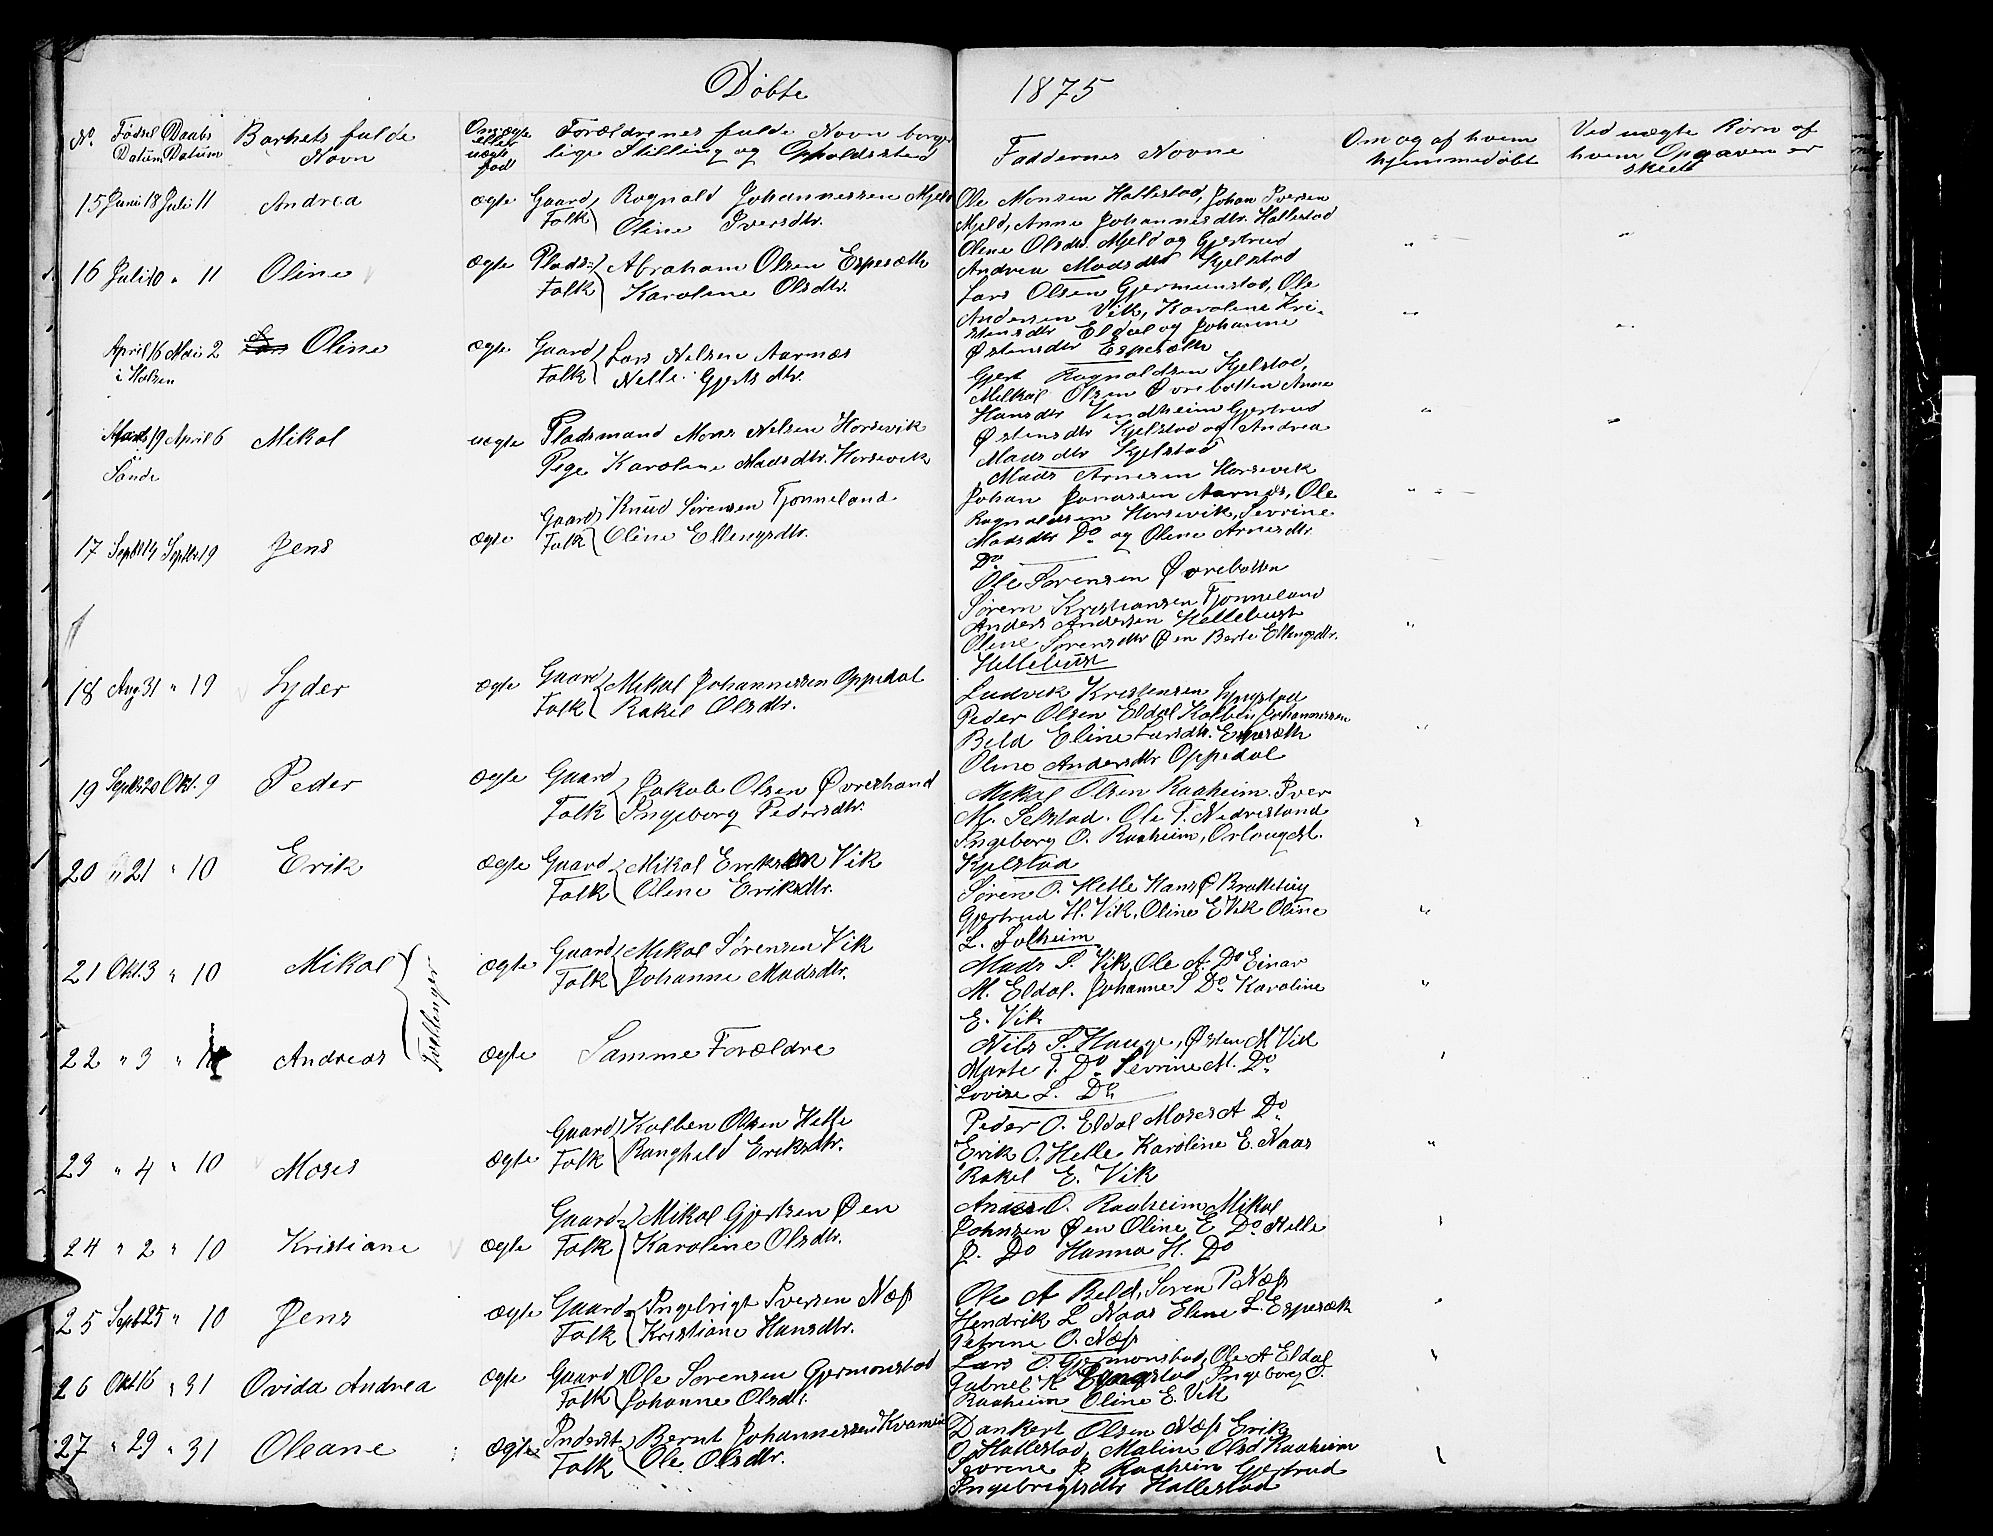 Døbte 1875
No. Fødsel Datum Daabs Datum Barnets fulde Navn Om ægte eller uægte født Forældrenes fulde Navn borgerlige Stilling og Opholdssted Faddernes Navne Om og af hvem hjemmedøbt Ved uægte Børn af hvem Opgaven er skeet
15 Juni 18 Juli 11 Andrea ægte Gaard Folk Ragnald Johannessen Mjeld
Oline Iversdtr.
Ole Monsen Hallestad, Johan Iversen
Mjeld, Anne Johannesdtr. Hallestad
Oline Olsdtr. Mjeld og Gjertrud
Andrea Madsdtr Kjelstad
16 Juli 10 " 11 Oline ægte Plads Folk Abraham Olsen Espesæth
Karoline Olsdtr.
Lars Olsen Gjermunstad, Ole
Andersen Vik, Karoline Kri-
stensdtr Eldal og Johanne
Østensdtr Espesæth
April 16 Mai 2 Oline ægte Gaard Folk Lars Nelsen Aarnæs
i Holsen Nelle Gjertsdtr.
Gjert Ragnaldsen Kjelstad,
Mikal Olsen Øvrebotten Anne
Hansdtr Vendheim Gjertrud
Østensdtr Kjelstad og Andrea
Madsdtr Kjelstad
Marts 19 April 6 Mikal uægte Pladsmand Mons Nelsen Horsevik
Sande Pige Karoline Madsdtr. Horsevik
Mads Arnesen Horsevik
Johan Jonassen Aarnæs, Ole
Ragnaldsen Horsevik, Sevrine
Madsdtr Do og Oline Arnesdtr.
Do
17 Septbr 14 Septbr 19 Jens ægte Gaard Folk Knud Sørensen Tjønneland
Oline Ellengsdtr.
Ole Sørensen Øvrebotten
Sørem Kristiansen Tjønneland
Anders Andersen Hellebust
Oline Sørensdtr Øen Berte Ellengsdtr.
Hellebust
18 Aug 31 " 19 Lyder ægte Gaard Folk Mikal Johannessen Oppedal
Rakel Olsdtr.
Ludvik Kristensen
Peder Olsen Eldal Kolben Johannessen
Beld Eline Larsdtr. Espesæth
Oline Andersdtr Oppedal
19 Septbr 20 Okt. 9 Peder ægte Gaard Folk Jakob Olsen Øvrestrand
Ingeborg Pedersdtr.
Mikal Olsen Raaheim. Iver
M. Selstad. Ole T. Nedrestrand
Ingeborg O. Raaheim,
Kjelstad
20 " 21 " 10 Erik ægte Gaard Folk Mikal Eriksen Vik
Oline Eriksdtr.
Søren O. Helle Hans Ø Brattebøy
Gjertrud H. Vik, Oline E Vik Oline
L. Solheim
21 Okt. 3 " 10 Mikal ægte Gaard Folk Mikal Sørensen Vik
Tvillinger Johanne Madsdtr.
Mads S. Vik, Ole A. Do Einar
M. Eldal. Johanne S Do. Karoline
E. Vik
22 " 3 " 10 Andreas ægte Samme Forældre
Nils S. Hauge, Østen M Vik
Marte T. Do. Sevrine M. Do.
Lovise L. Do.
23 " 4 " 10 Moses ægte Gaard Folk Kolben Olsen Helle
Rangheld Eriksdtr.
Peder O. Eldal Moses A Do
Erik O. Helle Karoline E. Naas
Rakel E. Vik
24 " 2 " 10 Kristiane ægte Gaard Folk Mikal Gjertsen Øen
Karoline Olsdtr.
Anders O. Raaheim Mikal
Johnsen Øen Oline E Do. Nelle
J. Do Hanna H. Do
25 Sept 25 " 10 Jens ægte Gaard Folk Ingebrigt Iversen Næss
Kristiane Hansdtr.
Ole A Beld, Søren P. Næss
Hendrik L Naas Eline L. Espesæth
Petrine O. Næss
26 Okt 16 " 31 Ovida Andrea ægte Gaard Folk Ole Sørensen Gjermonstad
Johanne Olsdtr.
Lars O. Gjermonstad, Ole A Eldal
Gabriel K Engestad Ingeborg O.
Raaheim Oline E. Vik
27 " 29 " 31 Oleane ægte Inderst Folk Bernt Johannessen Kvammen
Ole Olsdtr.
Dankert Olsen Næss Erik
O. Hallestad, Maline Olsd Raaheim
Sevrine P. Raaheim Gjertrud
Ingebrigtsdtr Hallestad